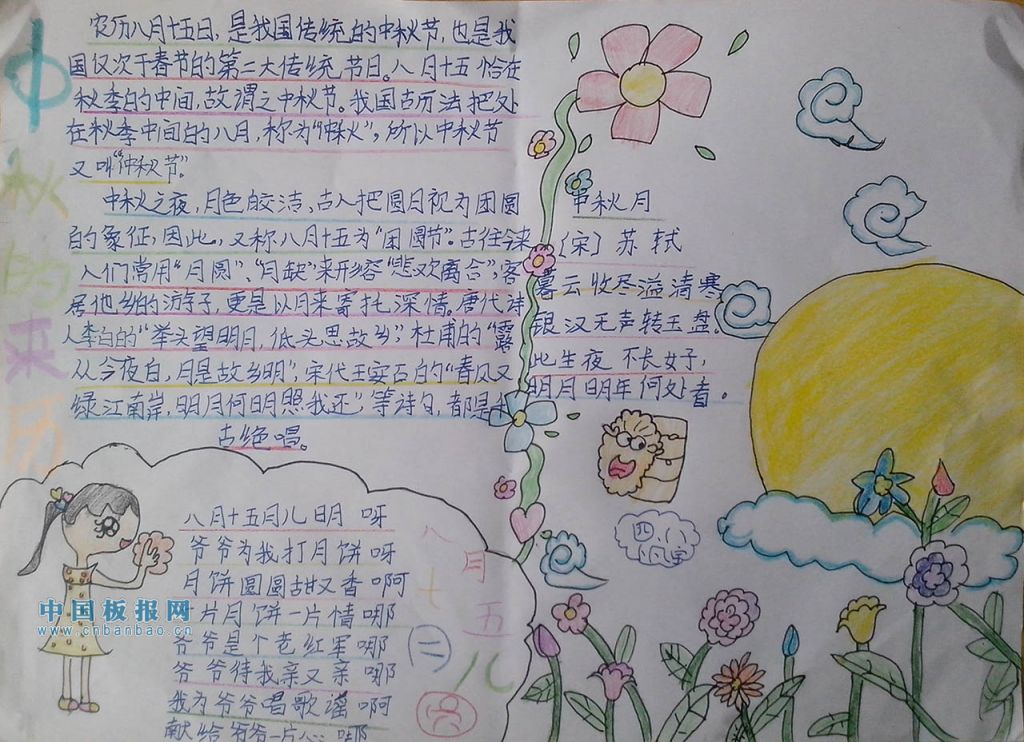 中秋的来历
农历八月十五日，是我国传统的中秋节，也是我
国仅次于春节的第二大传统节日。八月十五恰在
秋季的中间，故谓之中秋节。我国古历法把处
在秋季中间的八月，称为“仲秋”，所以中秋节
又叫“仲秋节”。
中秋之夜，月色皎洁，古人把圆月视为团圆
的象征，因此，又称八月十五为“团圆节”。古往今来，
人们常用“月圆”、“月缺”来形容“悲欢离合”，客
居他乡的游子，更是以月来寄托深情。唐代诗
人李白的“举头望明月，低头思故乡”，杜甫的“露
从今夜白，月是故乡明”，宋代王安石的“春风又
绿江南岸，明月何时照我还”等诗句，都是千
古绝唱。
中秋月
〔宋〕苏轼
暮云收尽溢清寒，
银汉无声转玉盘。
此生夜不长好，
明月明年何处看。
八月十五儿
八月十五月儿明呀
爷爷为我打月饼呀
月饼圆圆甜又香啊
片月饼一片情哪
爷爷是个老红军哪
爷爷待我亲又亲哪
我为爷爷唱歌谣啊
献给爷爷一片心哪
中国板报网
www.cnbanbao.cn
(二)